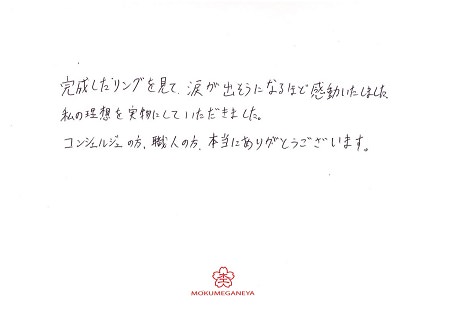 完成したリングを見て、涙が出そうになるほど感動いたしました
私の理想を実物にしていただきました。
コンシェルジュの方、職人の方、本当にありがとうございます。
MOKUMEGANEYA